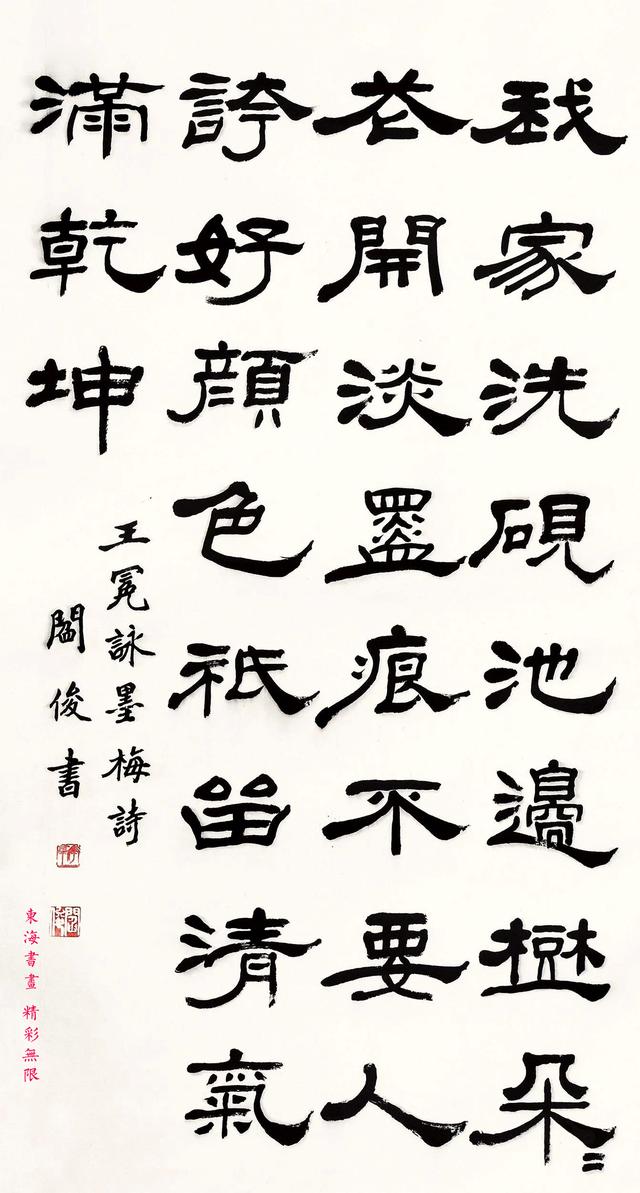 我家洗硯池邊樹朵〻
花開淡墨痕不要人
誇好顔色祇留清氣
滿乾坤
王冕詠墨梅詩
閻俊書
東海書畫 精彩無限